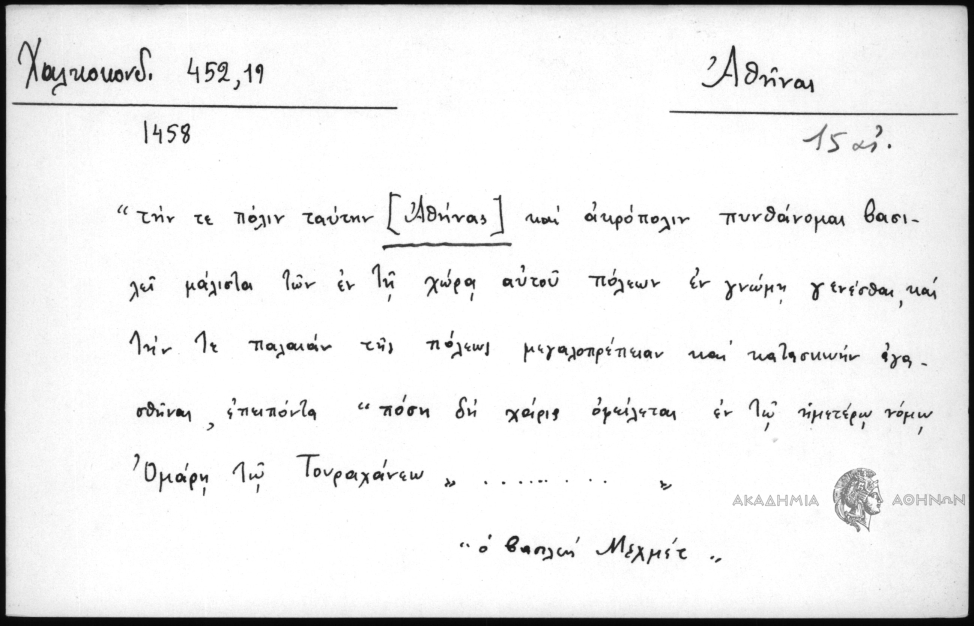 Χαλκοκονδ. 452,19
Ἀθῆναι
1458
15 αἰ.
“τήν τε πόλιν ταύτην [Ἀθήνας] καὶ ἀκρόπολιν πυνθάνομαι βασι-
λεῖ μάλιστα τῶν ἐν τῇ χώρᾳ αὐτοῦ πόλεων ἐν γνώμῃ γενέσθαι, καὶ
τήν τε παλαιὰν τῆς πόλεως μεγαλοπρέπειαν καὶ κατασκυὴν ἀγα-
σθῆναι, ἐπειπόντα “πόση δὴ χάρις ὀφείλεται ἐν τῷ ἡμετέρῳ νόμῳ
Ὀμάρῃ τῷ Τουραχάνεω „ ........ „
“ὁ βασιλεὺ Μεχμέτ„
ΑΚΑΔΗΜΙΑ ΑΘΗΝΩΝ